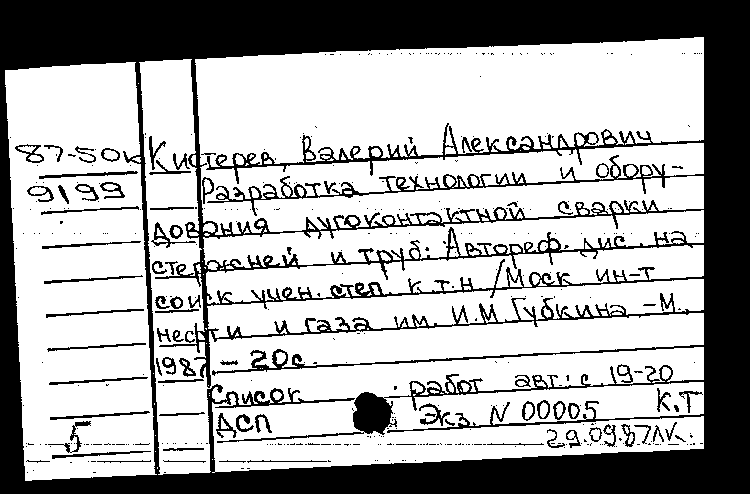 87-50к Кистерев, Валерий Александрович
9199 Разработка технологии и обору-
дования дугоконтактной сварки
стержней и труб: Автореф. дис. на
соиск. учен. степ. к.т.н /Моск ин-т
нефти и газа им. И.М.Губкина -М.,
1987. - 20с.
Список работ авт.: с. 19-20
ДСП Экз. N 00005 К.Т
5 29.09.87ЛК.